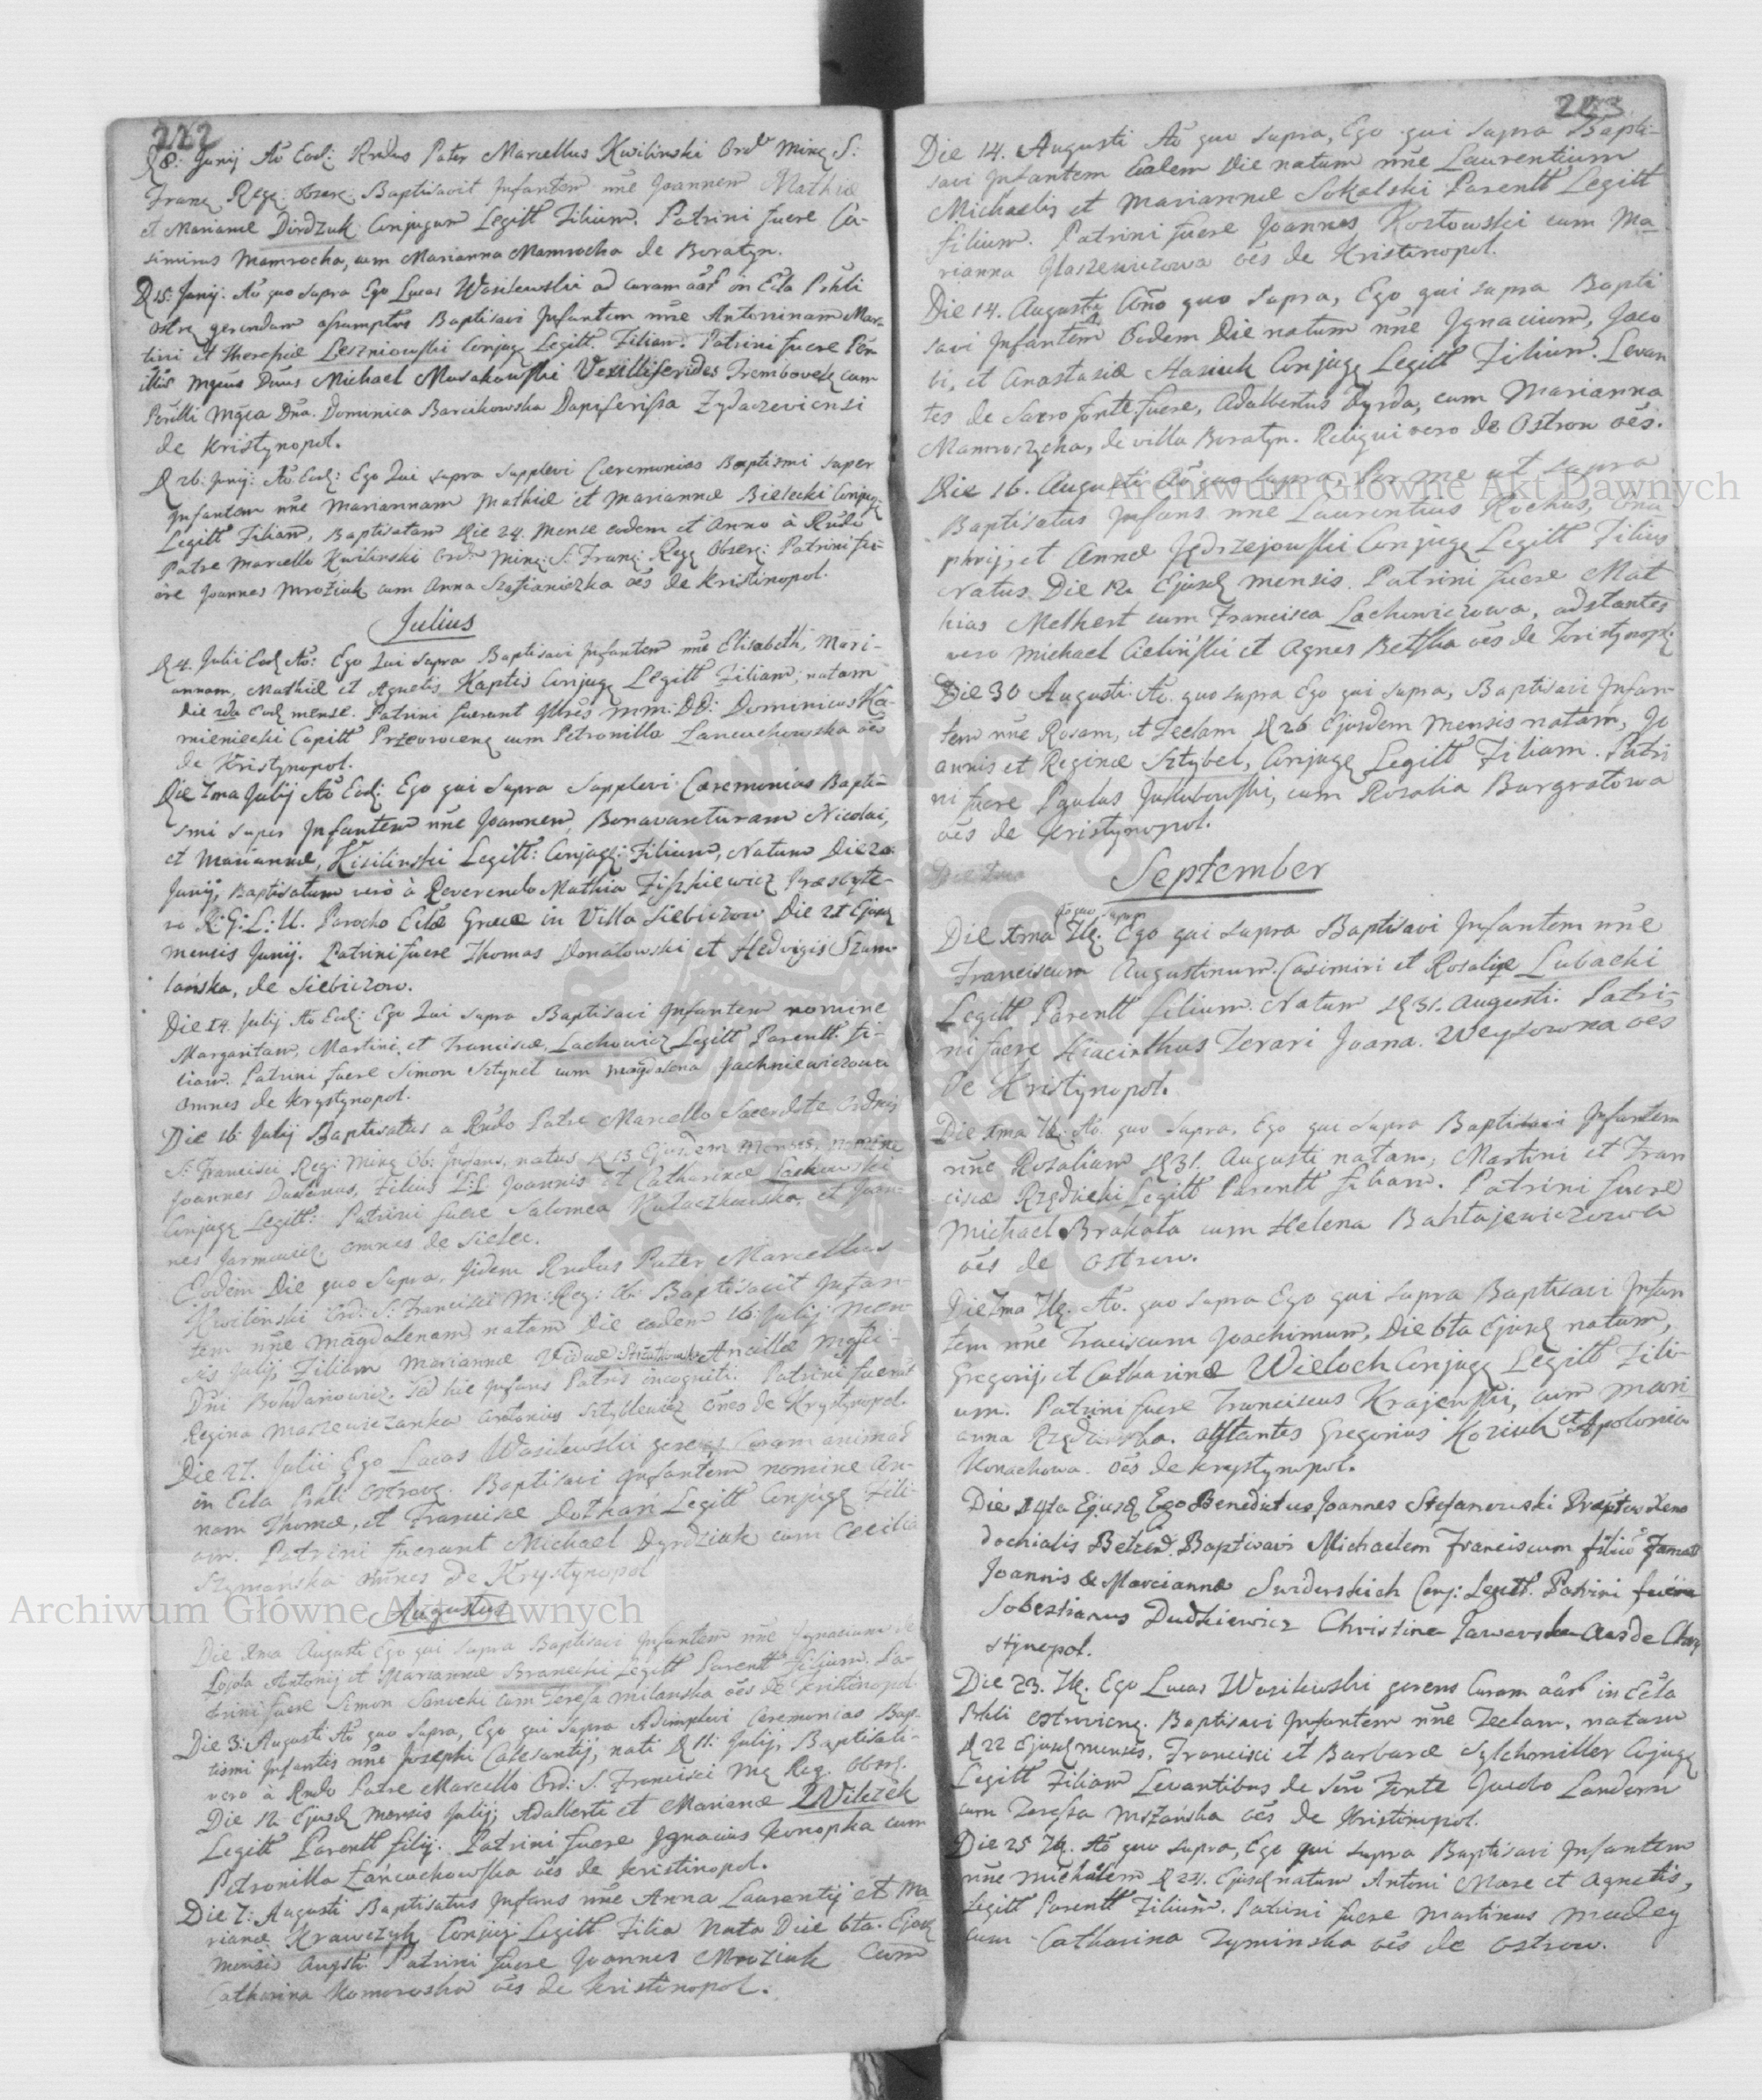 222
D 8: Junij Ao Eod: Rndus Pater Marcellus Kwilinski Ord. Minq S:
Franq Regq: Obserq: Baptisavit Infantem nne Joannem Mathiæ
et Marianæ Dirdziuk Conjugum Legitt Filium. Patrini fuere Ca-
simirus Mamrocha, cum Marianna Mamrocha de Boratyn.
D 15: Junij: Ao quo supra Ego Lucas Wasilewski ad curam aar in Ecla Pchli
Ostrq gerendam assumptus Baptisavi Infantem nne Antoninam Mar-
tini et Theresiæ Leszniowski Conjugq Legitt Filiam. Patrini fuere
Mgcus Dnus Michael Murakowski Vexilliferides Trembovelq cum
Mgca Dna. Dominica Barcikowska Dapiferissa Zydaczeviensi
de Kristynopol.
D 26: Junij: Ao Eod: Ego Qui supra supplevi Cæremonias Baptismi super
Infantem nne Mariannam Mathiæ et Mariannæ Bielecki Conjugq:
Legitt Filiam, Baptisatam Die 24. Mense eodem et Anno à Rndo
Patre Marcello Kwilinski Ord. Minq: S. Franq: Regq Obserq: Patrini fu-
ere Joannes Mroziuk cum Anna oes de Kristinopol.
Julius
D 4. Julii Eod Ao: Ego Qui supra Baptisavi Infantem nne Elisabeth, Mari-
annam, Mathiæ et Agnetis Kaptis Conjugq Legitt Filiam, natam
Die 2da Eod mense. Patrini fuerunt MM: DD: Dominicus Ka-
mieniecki Capitt cum Petronilla Lancuchowska oes
de Kristynopol.
Die 7ma Julij Ao Eod: Ego qui supra supplevi Cæremonias Bapti-
smi super Infantem nne Joannem, Bonaventuram Nicolai,
et Mariannæ, Kisilinski Legitt: Conjugq: Filium, Natum Die 20
Junij, Baptisatum vero à Reverendo Mathia Fiszkiewicz Præsbyte-
ro R: G: L: U. Parocho Eclæ Græcæ in Villa Siebieczow Die 21 Ejusd
mensis Junij. Patrini fuere Thomas Donatowski et Hedvigis Szum-
lańska, de Siebieczow.
Die 14. Julij Ao Eod: Ego Qui supra Baptisavi Infantem nomine
Margaritam, Martini, et Franciscæ, Lachowicz Legitt Parentt. fi-
liam. Patrini fuere Simon Sztynct cum Magdalena Jachniewiczowa
omnes de Krystynopol.
Die 16: Julij Baptisatus a Rndo Patre Marcello Sacerdote Ordnis
S: Francisci Reg: Minq Ob: Infans, natus D 13 Ejusdem Menses, nomine
Joannes Filius L:L Joannis et Catharinæ Lachowski
Conjugq Legitt: Patrini fuere Salomea Kulaczkowska, et Joan-
nes omnes de Sielec.
Eodem Die quo supra, Jidem Rndus Pater Marcellus
Kwilinski Ord: S: Francisci M: Reg: Ob: Baptisavit Infan-
tem nne Magdalenam natam Die eadem 16: Julij Men-
sis Julij, Filiam Mariannæ Viduæ Ancillæ Mgfci
Dni Bohdanowicz. Sed hic Infans Patris incogniti. Patrini fuerunt
Regina Maszewiczanka Antonius Sztyblewicz omes de Krystynopol.
Die 27. Julii Ego Lucas Wasilewski gerens Curam animar
in Ecla Pchli Ostrovq. Baptisavi Infantem nomine An-
nam Thomæ, et Franciscæ Dothań Legitt Conjugq Fili-
am. Patrini fuerunt Michael Dyrdziuk cum Cecilia
Szymańska omnes de Krystynopol
Augustus
Die 1ma Augusti Ego qui supra Baptisavi Infantem nne Ignacium de
Lojola Antonij et Mariannæ Legitt Parentt filium. Pa-
trini fuere Simon Sanocki cum Teressa Milanska oes de Kristinopol
Die 3: Augusti Ao quo supra, Ego qui supra Adimplevi Ceremonias Bap-
tismi Infantis nne Josephi Calesantij, nati D 11: Julij, Baptisati-
vero à Rndo Patre Marcello Ord: S. Francisci Mq Reg. Obserq.
Die 12 Ejusd Mensis Julij, Adalberti et Mariannæ Wilczek
Legitt Parentt filij. Patrini fuere Ignacius Konopka cum
Petronilla Łańcuchowska oes de Kristinopol.
Die 7: Augusti Baptisatus Infans nne Anna Laurentij et Ma
rianæ Krawczyk Conjugq Legitt Filia Nata Die 6ta. Ejusd
Mensis Augsti Patrini fuere Joannes Mroziuk cum
Catharina Komorowska oes de Kristinopol.
223
Die 14. Augusti Ao quo supra, Ego qui supra Bapti-
savi Infantem Eadem Die natum nne Laurentium
Michaelis et Mariannæ Sokalski Parentt Legitt
filium. Patrini fuere Joannes Kozłowski cum Ma
rianna Głaszewiczowa oes de Kristinopol.
Die 14. Augusti Anno quo supra, Ego qui supra Bapti
savi Infantem Eodem Die natum nne Ignacium, Jaco
bi, et Anastasiæ Stasiuk Conjugq Legitt Filium. Levan
tes de Sacro fonte fuere, Adalbertus Dyrda, cum Marianna
Mamroszycka, de villa Boratyn. Reliqui vero de Ostrow oes.
Die 16. Augusti Ao quo supra, Per me ut supra
Baptisatus Infans nne Laurentius Rochus, Onu
phrij, et Annæ Jędrzejowski Conjugq Legitt Filius
Natus Die 12 Ejusd mensis. Patrini fuere Mat
hias Melhert cum Francisca Lachowiczowa, adstantes
vero Michael Cieliński et Agnes Betska oes de Kristynopol.
Die 30 Augusti Ao quo supra Ego qui supra, Baptisavi Infan-
tem nne Rosam, et Teclam D 26 Ejusdem Mensis natam, Jo
annis et Reginæ Sztybel, Conjugq Legitt Filiam. Patri
ni fuere Paulus Jakubowski, cum Rozalia Burgratowa
oes de Kristynopol.
September
Ao quo supra
Die 1ma 7br. Ego qui supra Baptisavi Infantem nne
Franciscum Augustinum. Casimiri et Rosaliæ Lubacki
Legitt Parentt filium. Natum D 31. Augusti. Patri-
ni fuere Hiacinthus Ferari Joana. Weysowna oes
de Kristynopol.
Die 1ma 7br: Ao quo supra, Ego qui supra Baptisavi Infantem
nne Rozaliam D 31. Augusti natam, Martini et Fran
ciscæ Rzędzicki Legitt Parentt filiam. Patrini fuere
Michael Brakała cum Helena Bahtajewiczowa
oes de Ostrow.
Die 7ma 7br. Ao. quo supra Ego qui supra Baptisavi Infan
tem nne Franciscum Joachimum, Die 6ta Ejusd natum,
Gregorij, et Catharinæ Wieloch Conjugq Legitt Fili-
um. Patrini fuere Franciscus Krajewski, cum Mari
anna Rzędzińska. Asstantes Gregorius Koziuk et Apolonia
Konachowa oes de Krystynopol.
Die 14ta Ejusd Ego Benedictus Joannes Stefanowski Præptus Xeno
dochialis Belzen. Baptisavi Michaelem Franciscum filiu
Joannis & Mariannæ Swiderskich Conj: Legitt. Patrini fuere
Sobestianus Dudkiewicz Christina oes de Chry
stynopol.
Die 23. 7br. Ego Lucas Wasilewski gerens Curam aar in Ecla
Pchli Ostrovienq. Baptisavi Infantem nne Teclam, natam
D 22 Ejusd mensis, Francisci et Barbaræ Sylchmiller Cojugq
Legitt Filiam Levantibus de Scro Fonte Jacobo Landorn
cum Teressa Mszańska oes de Kristinopol.
Die 25 7br. Ao quo supra, Ego qui supra Baptisavi Infantem
nne Michælem D 24. Ejusd natum Antoni Mare et Agnetis,
Legitt Parentt Filium. Patrini fuere Martinus Madey
cum Catharina Zyminska oes de Ostrow.
Archiwum Główne Akt Dawnych
Archiwum Główne Akt Dawnych